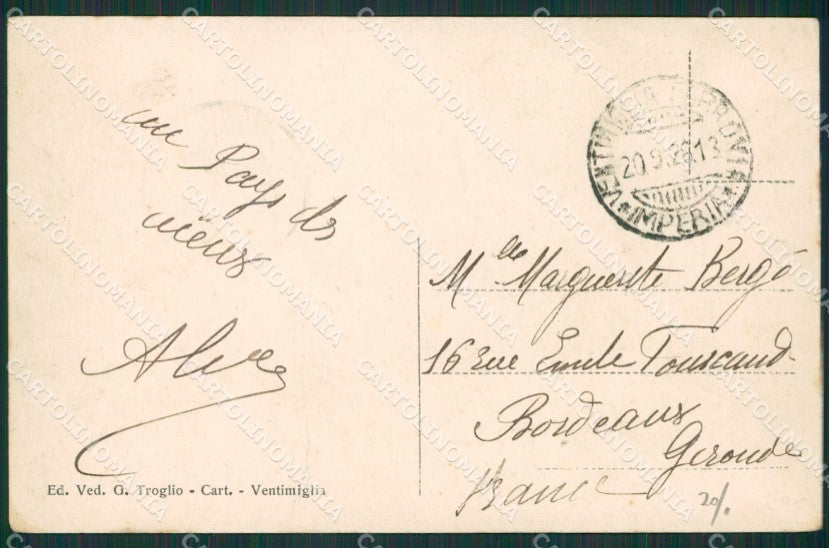 au Pays des
vieux
Mlle Marguerite Bergé
16 rue Emile Fourcand
Bordeaux
Gironde
France
20/.
VENTIMIGLIA
20.9.28.13
IMPERIA
Ed. Ved. G. Troglio - Cart. - Ventimiglia
CARTOLINOMANIA